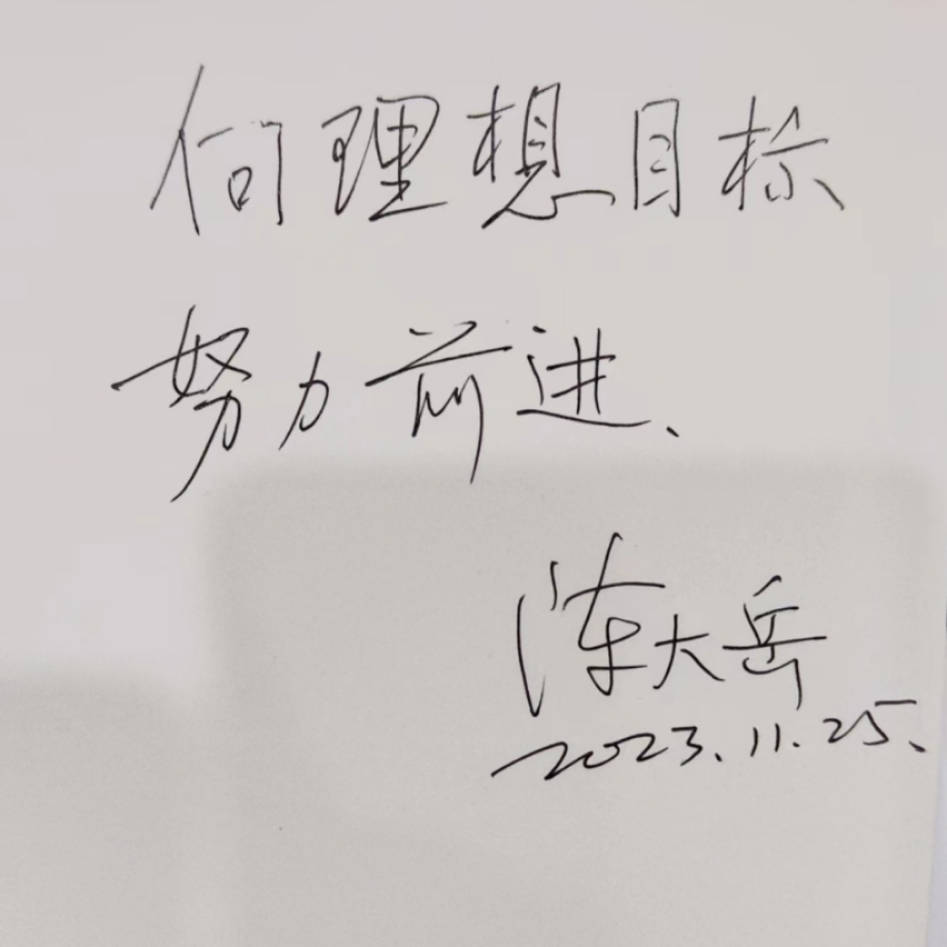 向理想目标
努力前进、
陈大岳
2023.11.25、